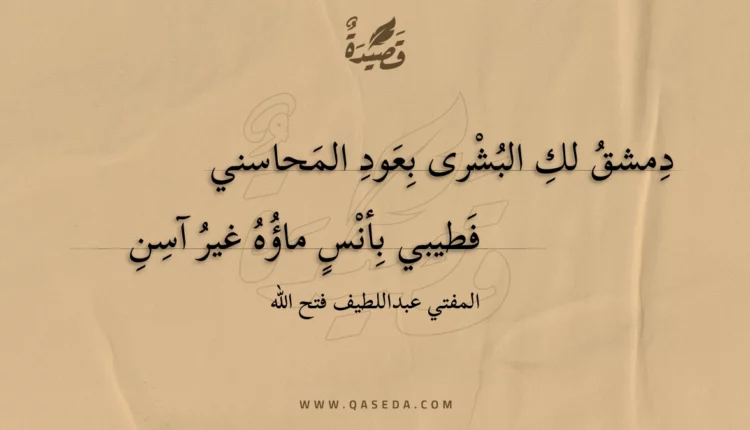 قَصِيدَةٌ
دِمشقُ لكِ البُشْرى بِعَودِ المَحاسني
فَطيبي بِأنْسٍ ماؤُهُ غيرُ آسِنِ
المفتي عبداللطيف فتح الله
WWW.QASEDA.COM